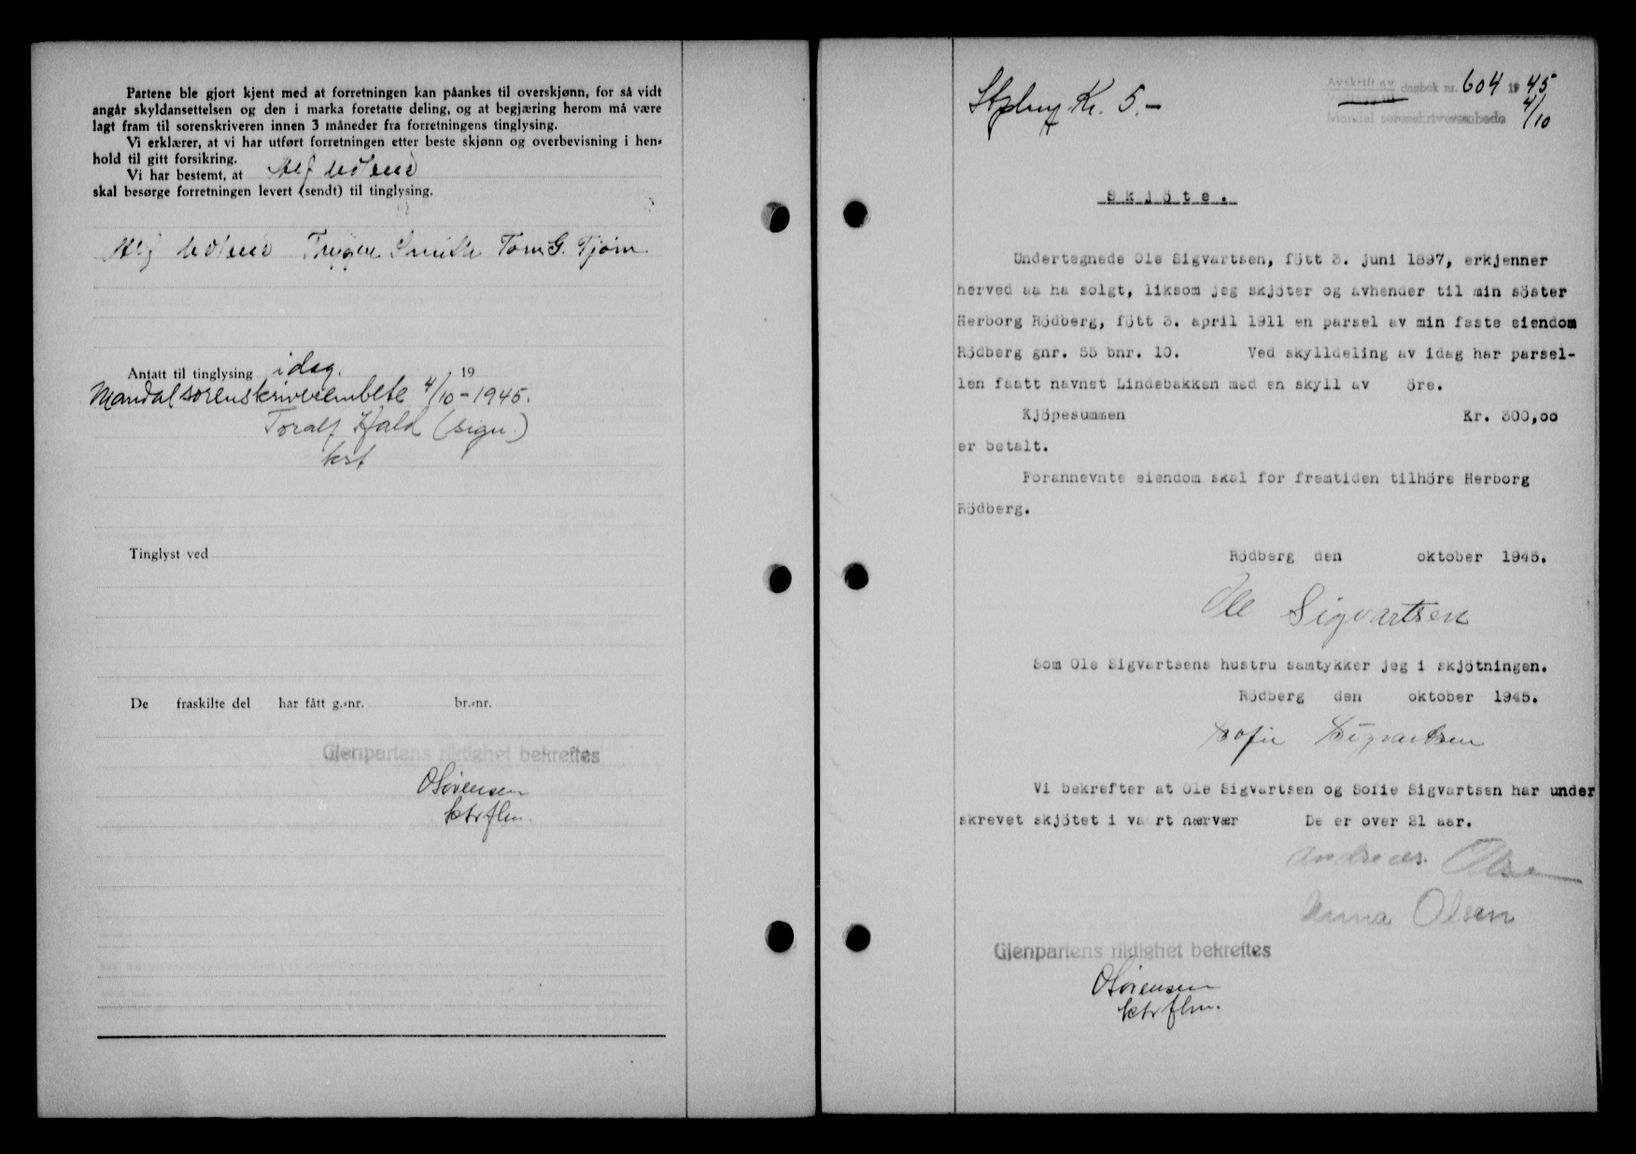 Partene ble gjort kjent med at forretningen kan påankes til overskjønn, for så vidt
angår skyldansettelsen og den i marka foretatte deling, og at begjæring herom må være
lagt fram til sorenskriveren innen 3 måneder fra forretningens tinglysing.
Vi erklærer, at vi har utført forretningen etter beste skjønn og overbevisning i hen-
hold til gitt forsikring.
Vi har bestemt, at Alf
skal besørge forretningen levert (sendt) til tinglysing.
Alf Trygve Smith Tom G. Tjøm
Antatt til tinglysing idag. 19
Mandal sorenskriverembete 4/10-1945.
Toralf Hald (sign.)
Tinglyst ved
De fraskilte del har fått g.-nr. br.-nr.
Gjenpartens riktighet bekreftes
OSørensen
ktrflm.
Stpl.av Kr. 5.-
Avskrift av dagbok nr. 604 19 45
Mandal sorenskriverembede 4/10
Skjöte.
Undertegnede Ole Sigvartsen, fött 3. juni 1897, erkjenner
herved aa ha solgt, liksom jeg skjöter og avhender til min söster
Herborg Rödberg, fött 3. april 1911 en parsel av min faste eiendom
Rödberg gnr. 55 bnr. 10. Ved skylldeling av idag har parsel-
len faatt navnet Lindebakken med en skyll av öre.
Kjöpesummen Kr. 300,00
er betalt.
Forannevnte eiendom skal for fremtiden tilhöre Herborg
Rödberg.
Rödberg den oktober 1945.
Ole Sigvartsen
Som Ole Sigvartsens hustru samtykker jeg i skjötningen.
Rödberg den oktober 1945.
Sofie Sigvartsen
Vi bekrefter at Ole Sigvartsen og Sofie Sigvartsen har under
skrevet skjötet i va rt nærvær De er over 21 aar.
Andreas Olsen
Anna Olsen
Gjenpartens riktighet bekreftes
OSørensen
ktrflm.